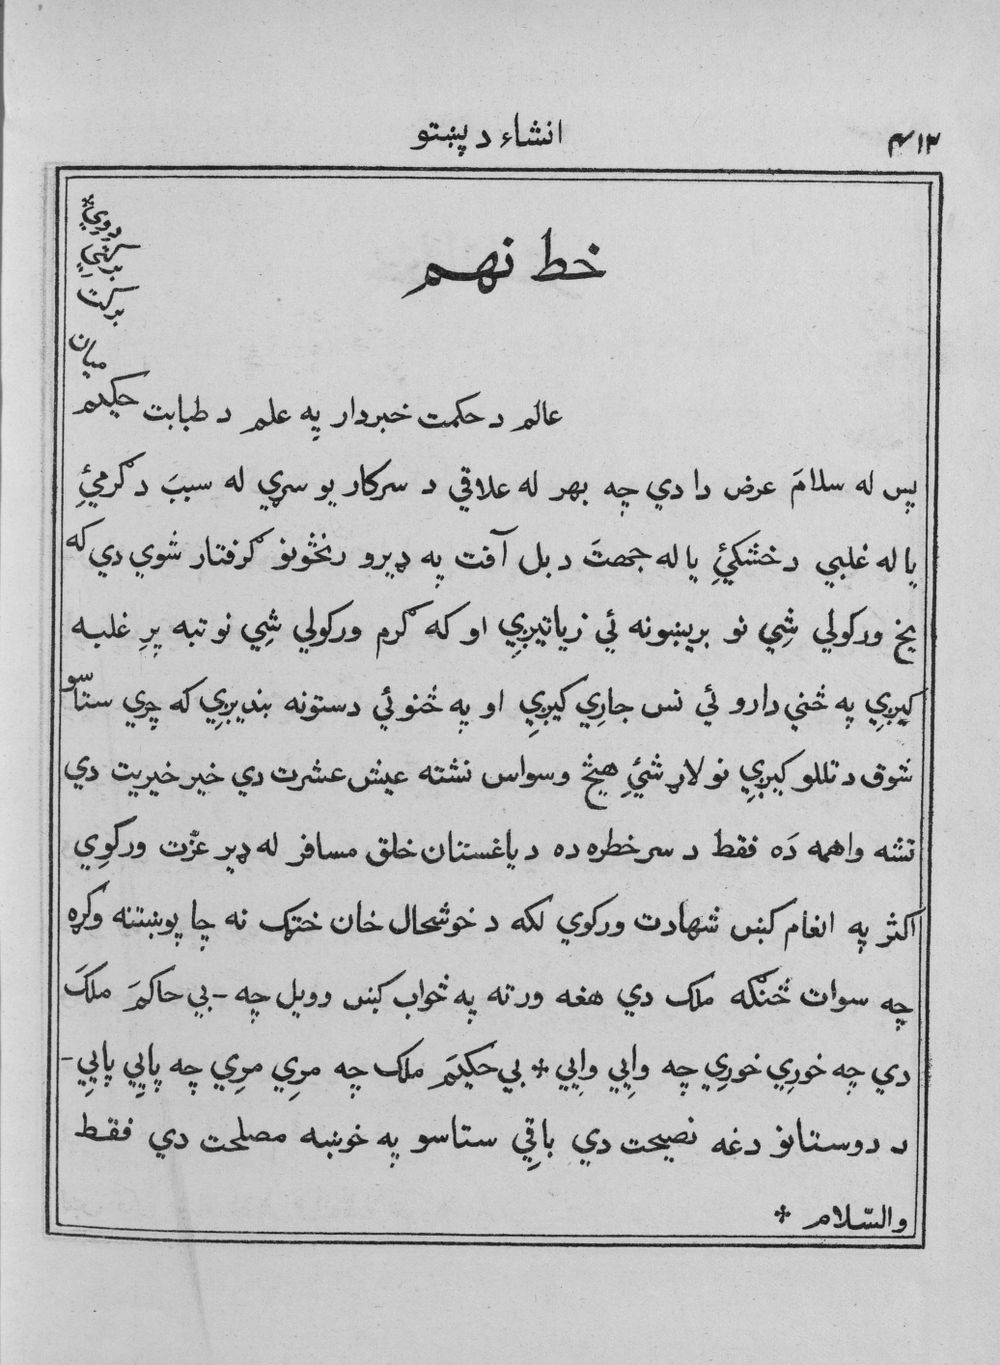 ۴۱۲
انشاء د پښتو
خط نهم
عالم د حکمت خبردار په علم د طبابت حکیم
میان
برکت
پس له سلامَ عرض دا دي چه بهر له علاقي د سرکار یو سړي له سببَ د ګرمئِ
یا له غلبي د خشکئِ یا له جهتَ د بل آفت په ډیرو رنځونو ګرفتار شوي دي که
یخ ورکولي شِي نو بریښونه ئي زیاتیږِي او که ګرم ورکولي شِي نو تبه پرِ غلبه
کیږِي په ځني دارو ئي نس جارِي کیږِي او په ځنو ئي دستونه بندیږِي که چرِي ستاسو
شوق د تللو کیږِي نو لاړ شئِ هیڅ وسواس نشته عیش عشرت دي خیر خیریت دي
نشه واهمه دَه فقط د سر خطره ده د یاغستان خلق مسافر له ډیر عزّت ورکوِي
اکثر په انعام کښ شهادت ورکوي لکه د خوشحال خان خټک نه چا پوښتنه وکړه
چه سوات څنګه ملک دي هغه ورته په ځواب کښ وویل چه - بي حاکمَ ملکَ
دي چه خورِي خورِي چه وایِي وایِي * بي حکیمَ ملک چه مرِي مرِي چه پایِي پایِي -
د دوستانو دغه نصیحت دي باقِي ستاسو په خوښه مصلحت دي فقط
والسّلام *